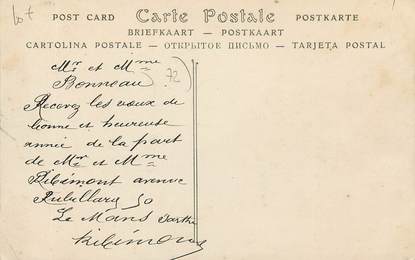 Lot
POST CARD Carte Postale POSTKARTE
BRIEFKAART — POSTKAART
CARTOLINA POSTALE — ОТКРЫТОЕ ПИСЬМО — TARJETA POSTAL
72
Mr et Mme
Bonneau
Recevez les vœux de
bonne et heureuse
année de la part
de Mr et Mme
Ribémont avenue
50
Le Mans Sarthe
Ribémont